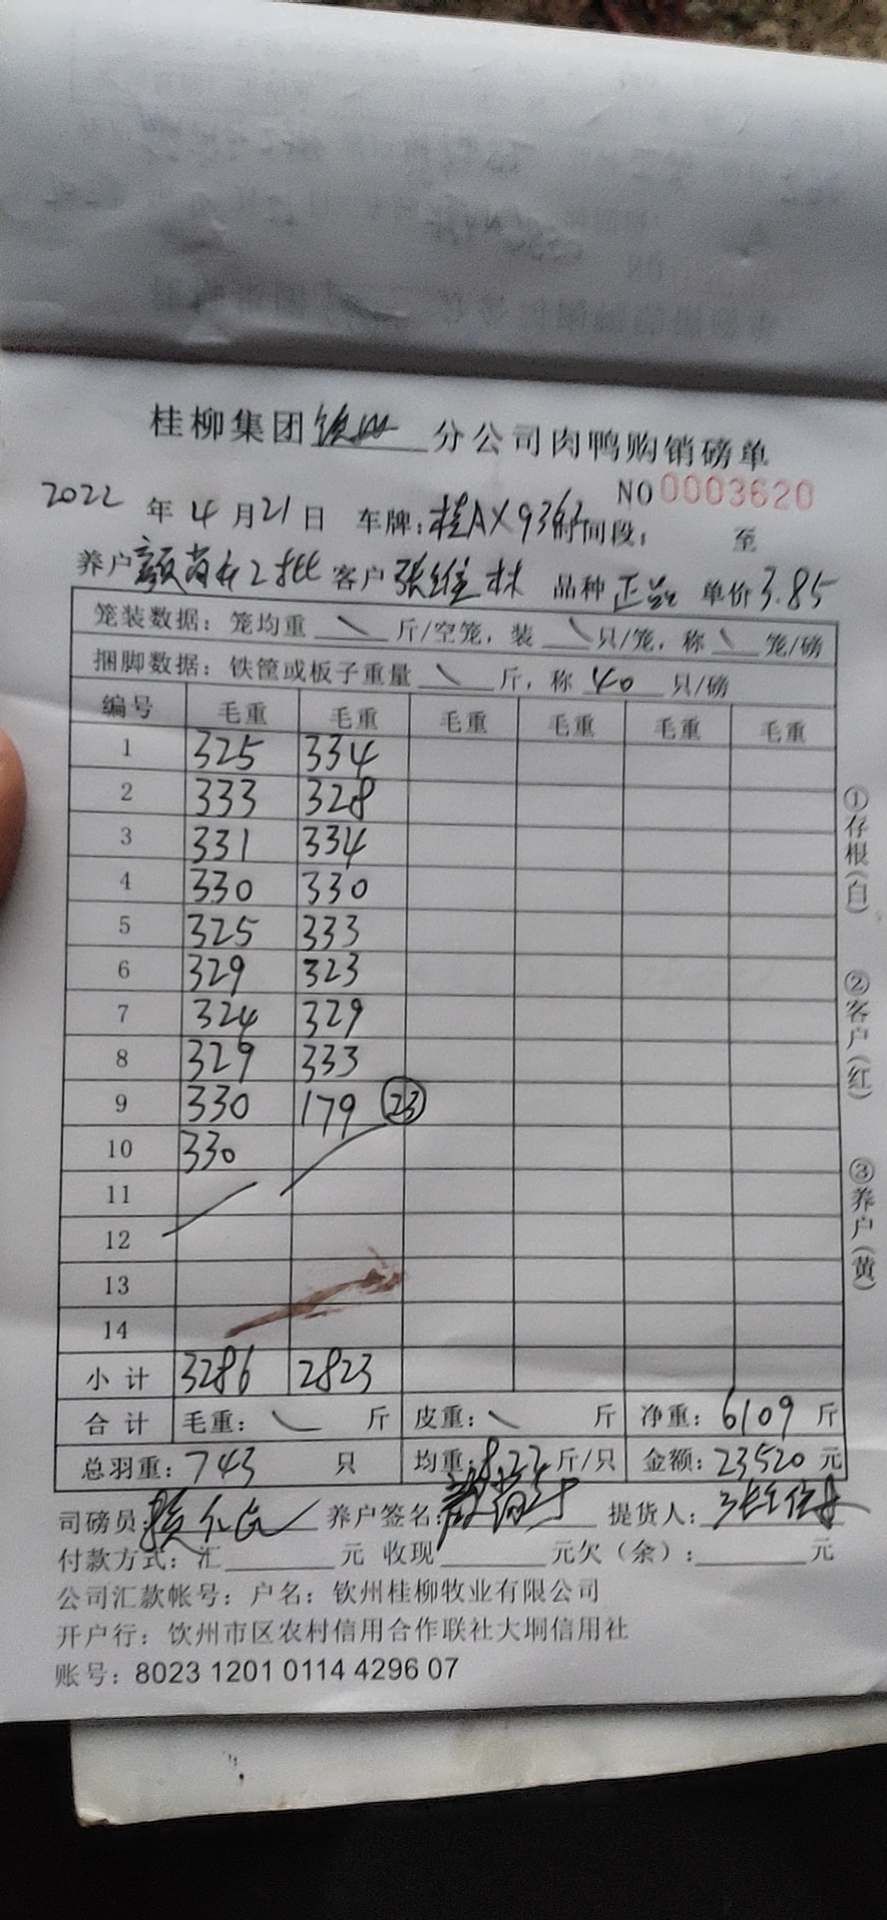 桂柳集团钦州分公司肉鸭购销磅单
NO 0003620
2022 年 4 月 21 日 车牌：桂AX9363 时间段： 至
养户 颜 2批 客户 张维林 品种 正品 单价 3.85
笼装数据：笼均重 \ 斤/空笼，装 \ 只/笼，称 \ 笼/磅
捆脚数据：铁筐或板子重量 \ 斤，称 40 只/磅
编号 毛重 毛重 毛重 毛重 毛重 毛重
1 325 334
2 333 328
3 331 334
4 330 330
5 325 333
6 329 323
7 324 329
8 329 333
9 330 179 ㉓
10 330
11
12
13
14
小计 3286 2823
合计 毛重： \ 斤 皮重： \ 斤 净重：6109 斤
总羽重：743 只 均重：8.22 斤/只 金额：23520 元
司磅员： 养户签名： 提货人：
付款方式：汇 元 收现 元欠（余）： 元
公司汇款帐号：户名：钦州桂柳牧业有限公司
开户行：钦州市区农村信用合作联社大垌信用社
账号：8023 1201 0114 4296 07
①存根(白) ②客户(红) ③养户(黄)